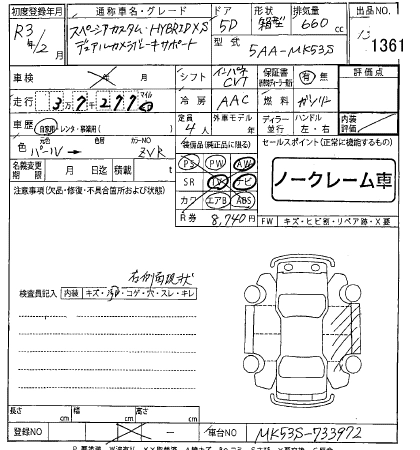 初度登録年月 通称車名・グレード ドア 形状 排気量 出品NO. 1
R3年/2月 スペーシアカスタム・HYBRID XS デュアルカメラブレーキサポート 5D 箱型 660cc 1361
型式 5AA-MK53S
車検 年 月 シフト インパネCVT 保証書 有・無 評価点
走行 3万7千277 マイル km 冷房 AAC 燃料 ガソリン
車歴 自家用・レンタ・事業用( ) 定員 4人 外車モデル 年 ディーラー・並行 ハンドル 左・右 内装評価
色 元色 パールV → 色 カラーNO ZVR 装備品(純正品に限る) セールスポイント(正常に機能するもの)
名義変更期限 月 日迄 積載 t PS PW AW ノークレーム車
注意事項(欠品・修復・不具合箇所および状態) SR TV ナビ
カワ エアB ABS
R券 8,740円 FW キズ・ヒビ割・リペア跡・X要
右側面現状
検査員記入 内装 キズ・汚れ・コゲ・穴・スレ・キレ
長さ cm 幅 cm 高さ cm
登録NO 車台NO MK53S-733972